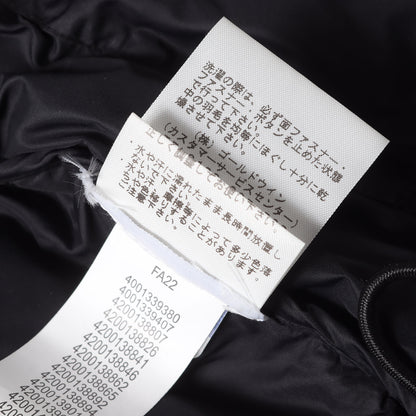 洗濯の際は、必ず面ファスナー・
ファスナー・ボタンを止めた状態
で行って下さい。
中の羽毛を均等にほぐし十分に乾
燥させて下さい。
(株)ゴールドウイン
(カスタマーサービスセンター)
水や汗に濡れたまま長時間放置し
ないで下さい。
水や汗、摩擦等によって多少色落
ちや色移りすることがあります。
ご注意下さい。
FA22
4001339380
4200139407
4200138807
4200138826
4200138841
4200138846
4200138862
4200138892
4200138894